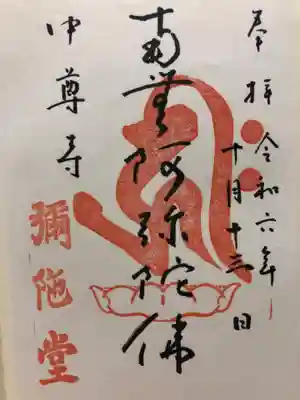 奉拝 令和六年
十月十三日
南無阿弥陀佛
中尊寺
彌陀堂